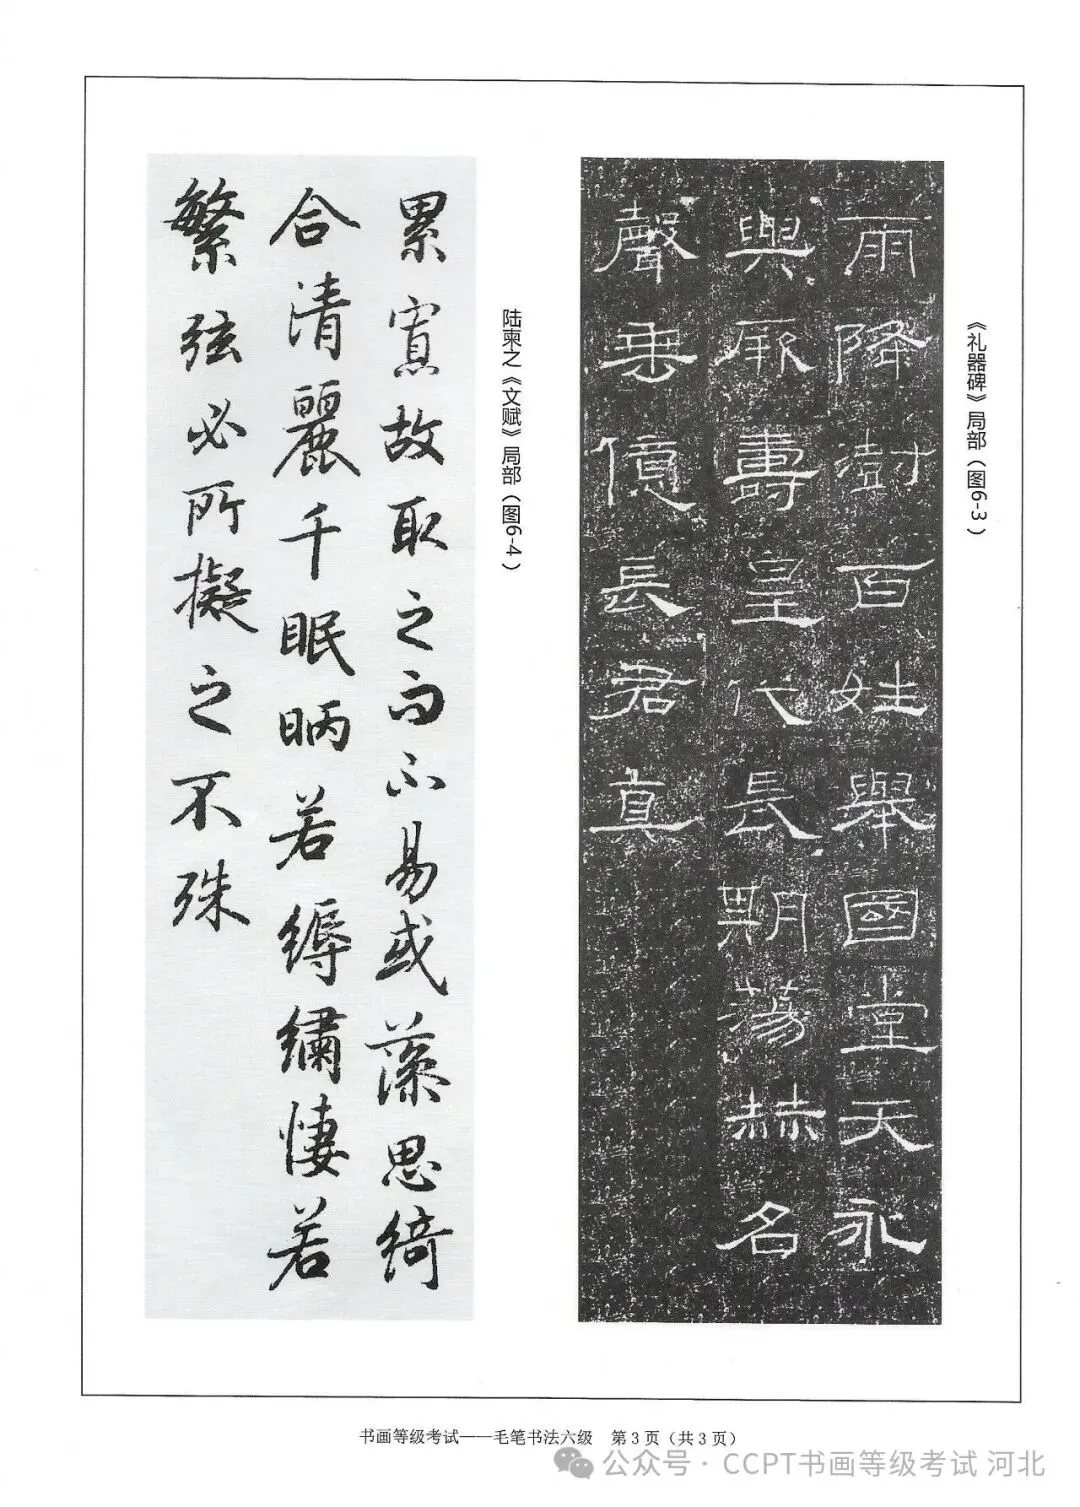 《礼器碑》局部（图6-3）
雨降澍百姓舉國堂天永
與厥壽皇代長期蕩赫名
聲垂億長君真
陆柬之《文赋》局部（图6-4）
累寡故取足而不易或藻思綺
合清麗千眠昞若縟繡悽若
繁弦必所擬之不殊
书画等级考试——毛笔书法六级 第3页（共3页）
公众号·CCPT书画等级考试 河北